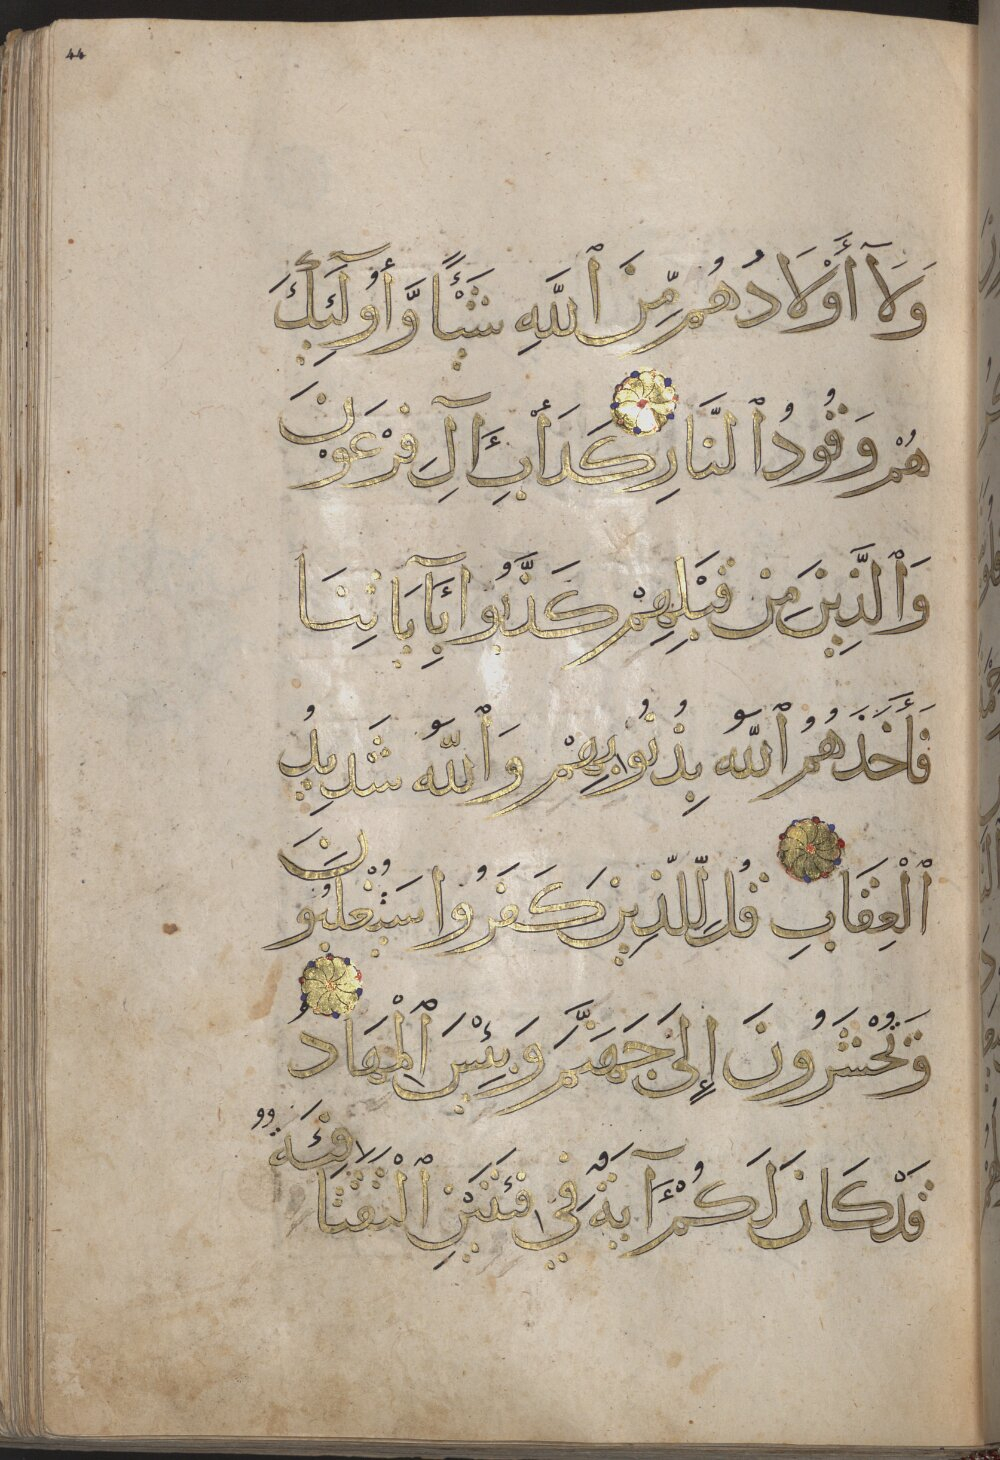 44
وَلَآ أَوْلَادُهُم مِّنَ ٱللَّهِ شَيْـًٔا وَّأُوْلَـٰٓئِكَ
هُمْ وَقُودُ ٱلنَّارِ كَدَأْبِ ءَالِ فِرْعَوْنَ
وَٱلَّذِينَ مِن قَبْلِهِمْ كَذَّبُوا بِـَٔايَاتِنَا
فَأَخَذَهُمُ ٱللَّهُ بِذُنُوبِهِمْ وَٱللَّهُ شَدِيدُ
ٱلْعِقَابِ قُل لِّلَّذِينَ كَفَرُوا سَتُغْلَبُونَ
وَتُحْشَرُونَ إِلَىٰ جَهَنَّمَ وَبِئْسَ ٱلْمِهَادُ
قَدْ كَانَ لَكُمْ ءَايَةٌ فِي فِئَتَيْنِ ٱلْتَقَتَا فِئَةٌ